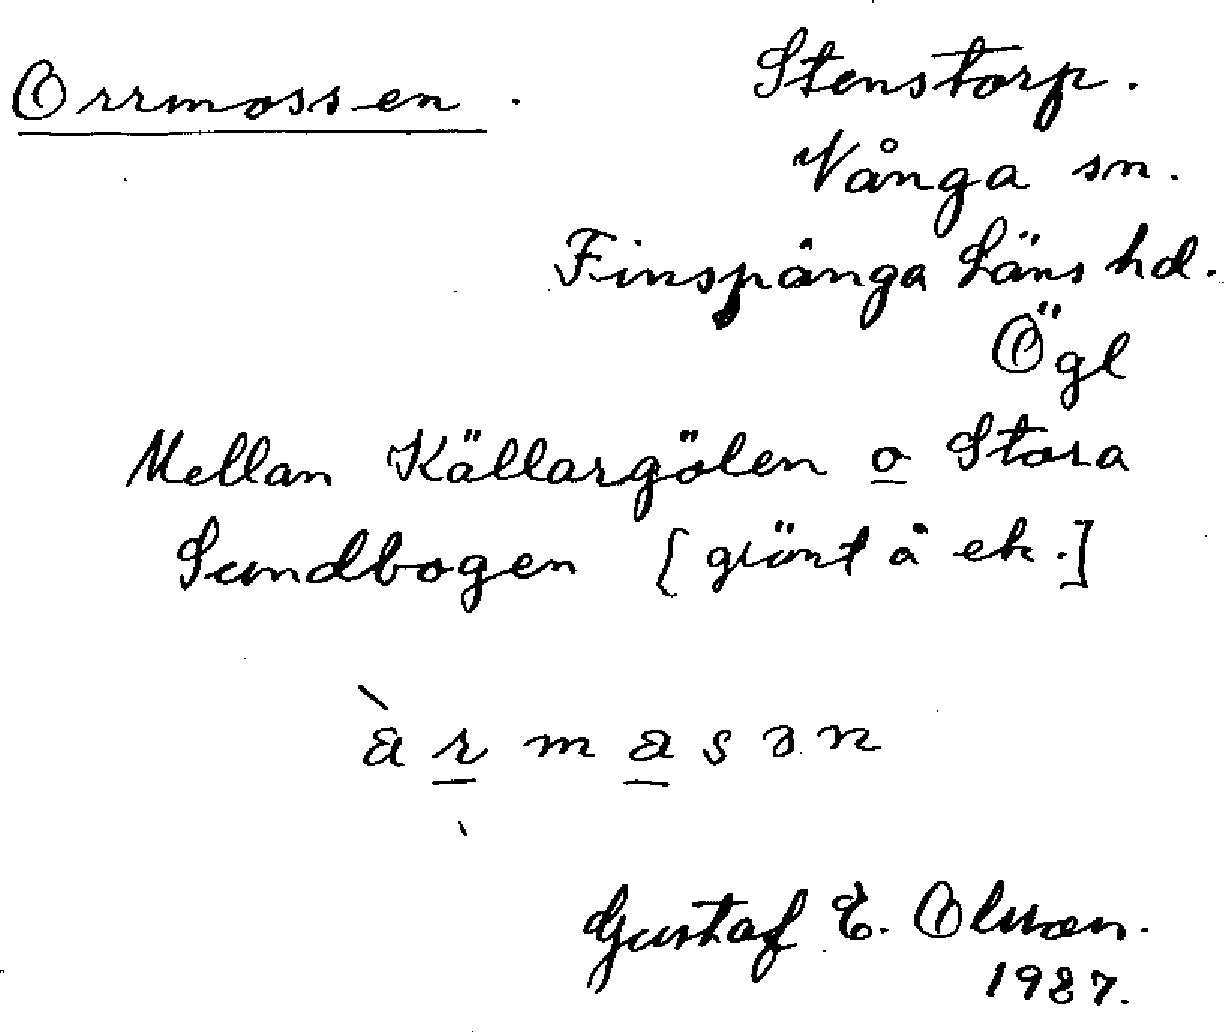 Orrmossen.
Stenstorp.
Vånga sn.
Finspånga Läns hd.
Ögl
Mellan Källargölen o Stora
Sundbogen [grönt å ek.]
Gustaf E. Olsson.
1927.